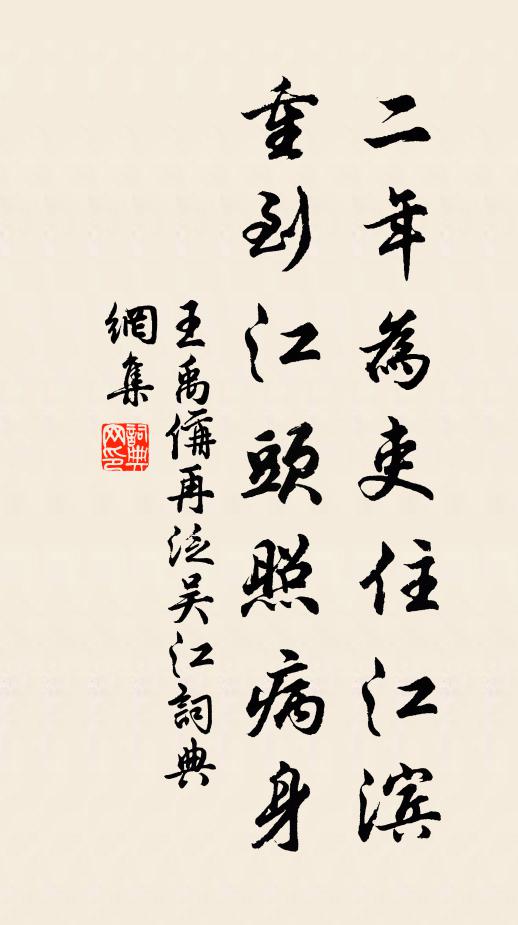 二年為吏住江滨
重到江頭照病身
王禹偁再泛吴江詞典
網集
詞典网印